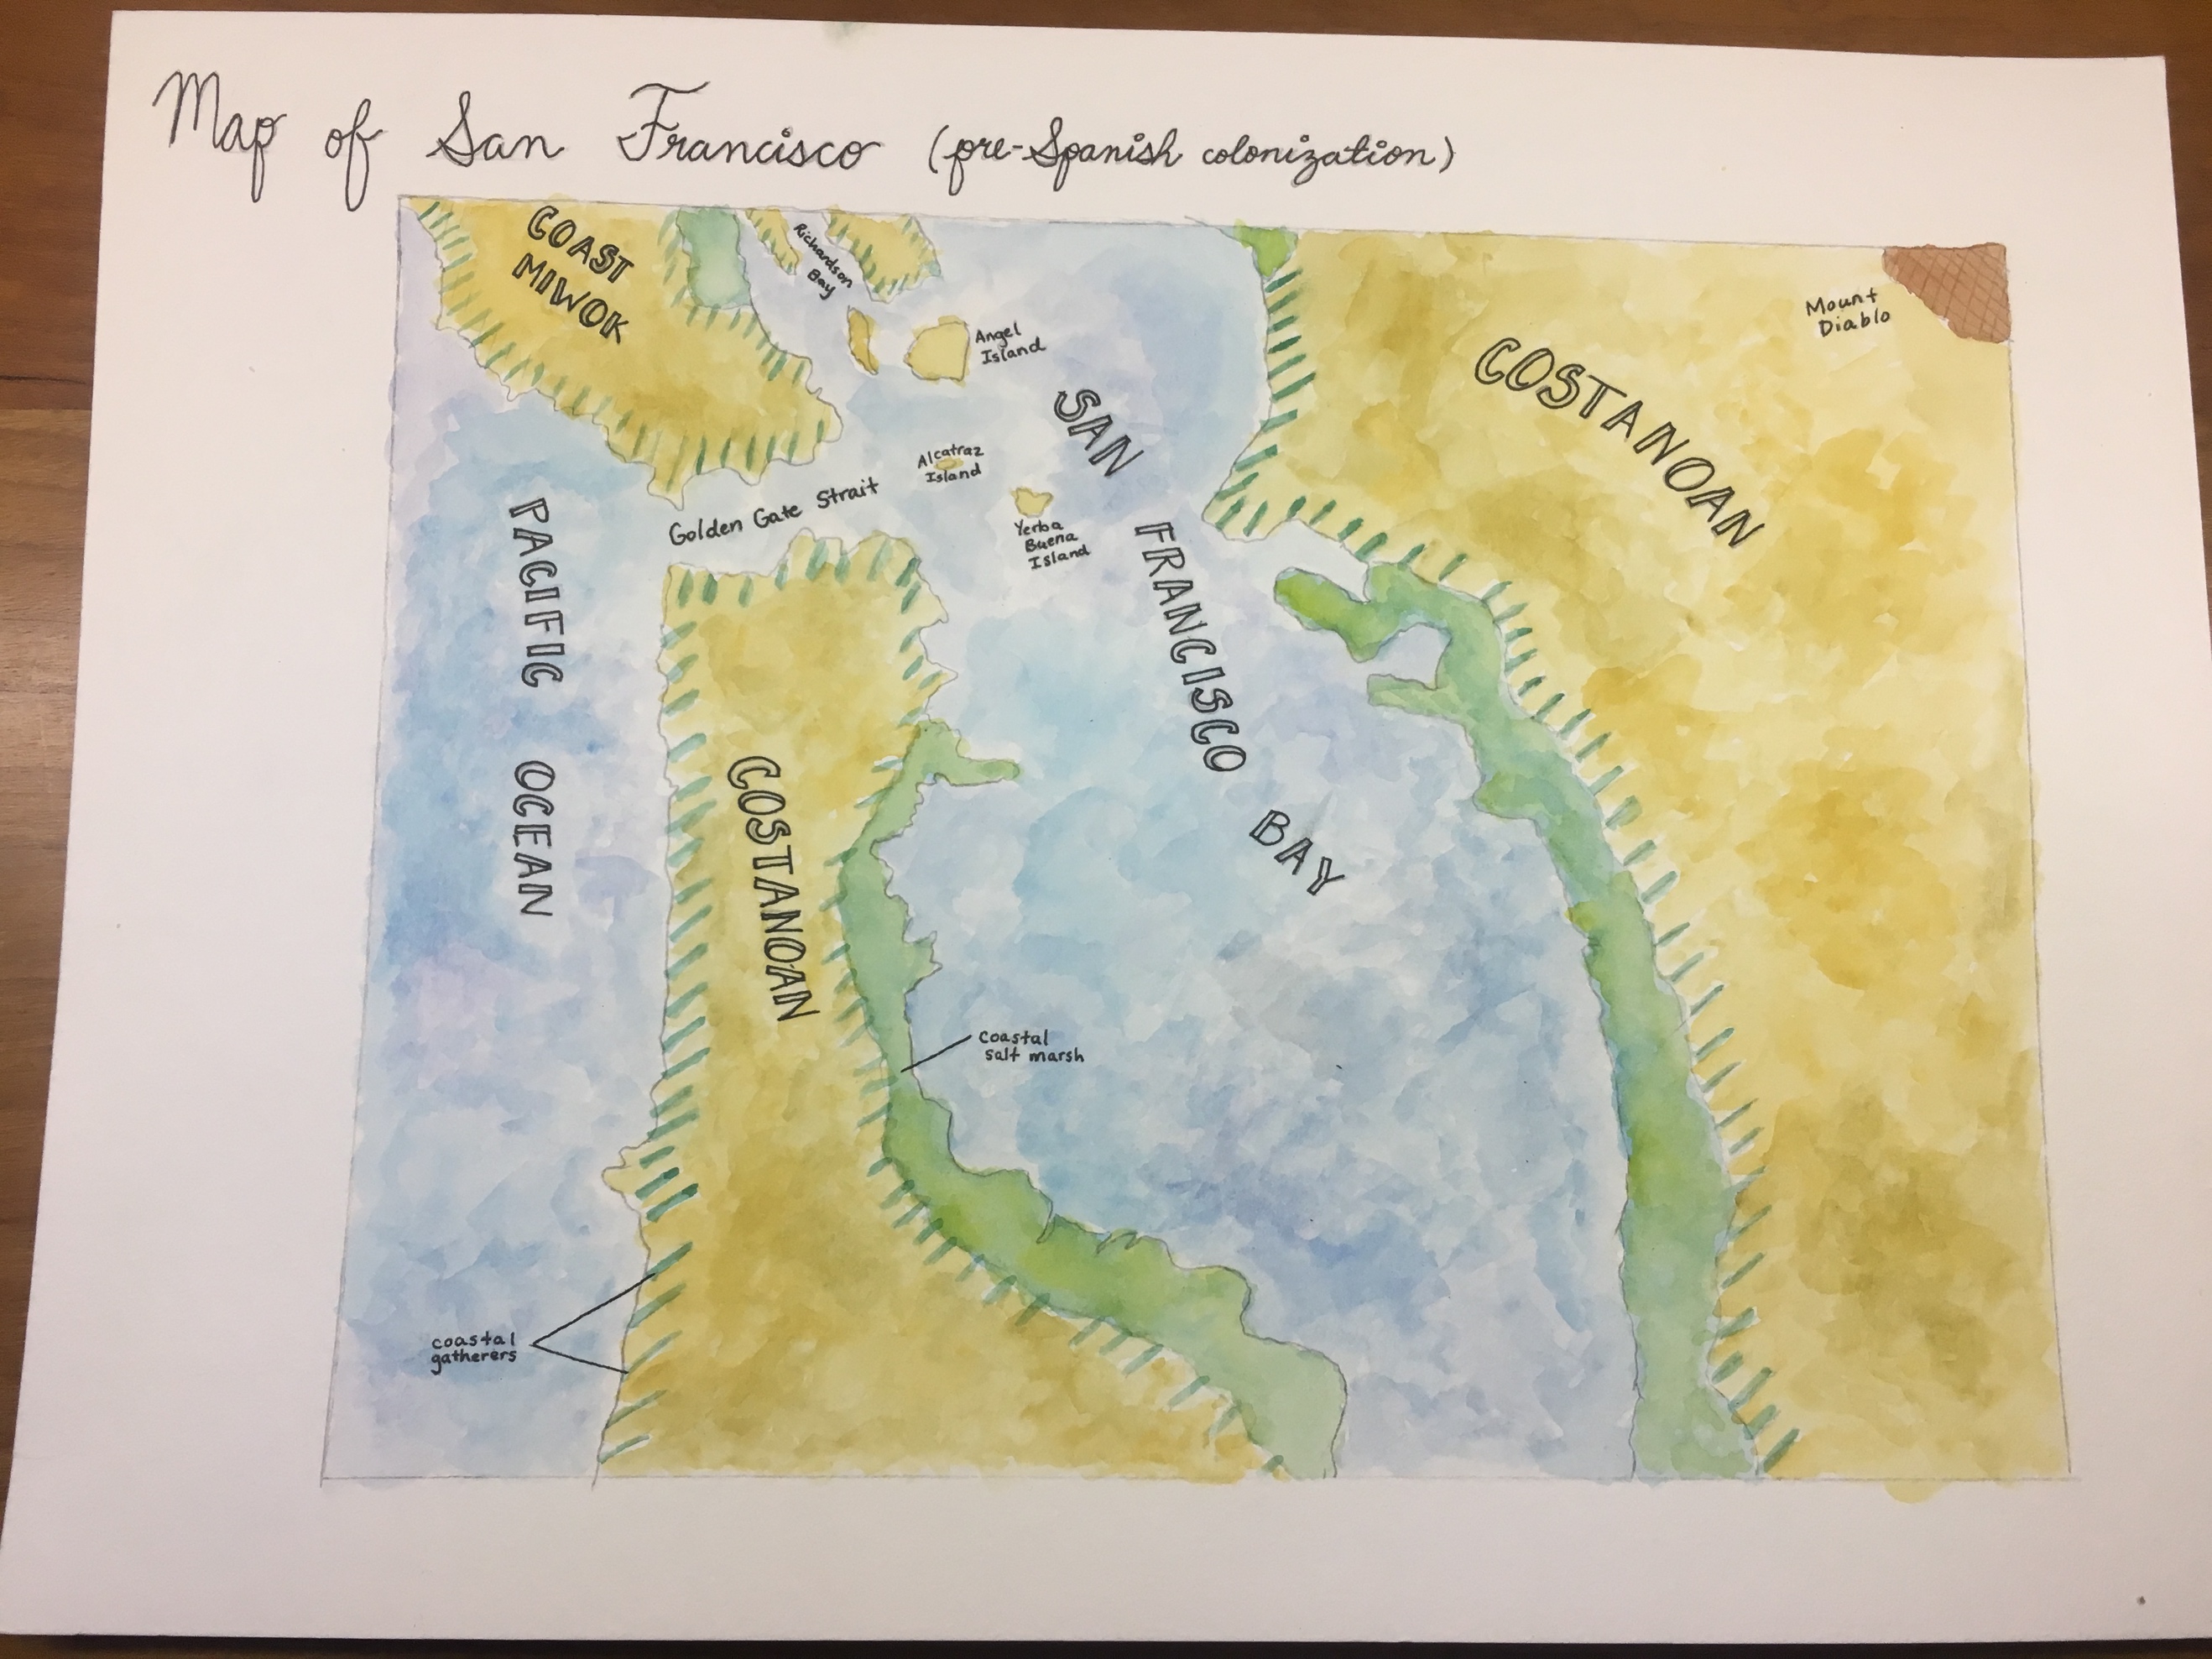 Map of San Francisco (pre-Spanish colonization)
COAST
MIWOK
Richardson
Bay
Angel
Island
Mount
Diablo
COSTANOAN
SAN
FRANCISCO
BAY
Alcatraz
Island
Golden Gate Strait
Yerba
Buena
Island
PACIFIC
OCEAN
COSTANOAN
coastal
salt marsh
coastal
gatherers